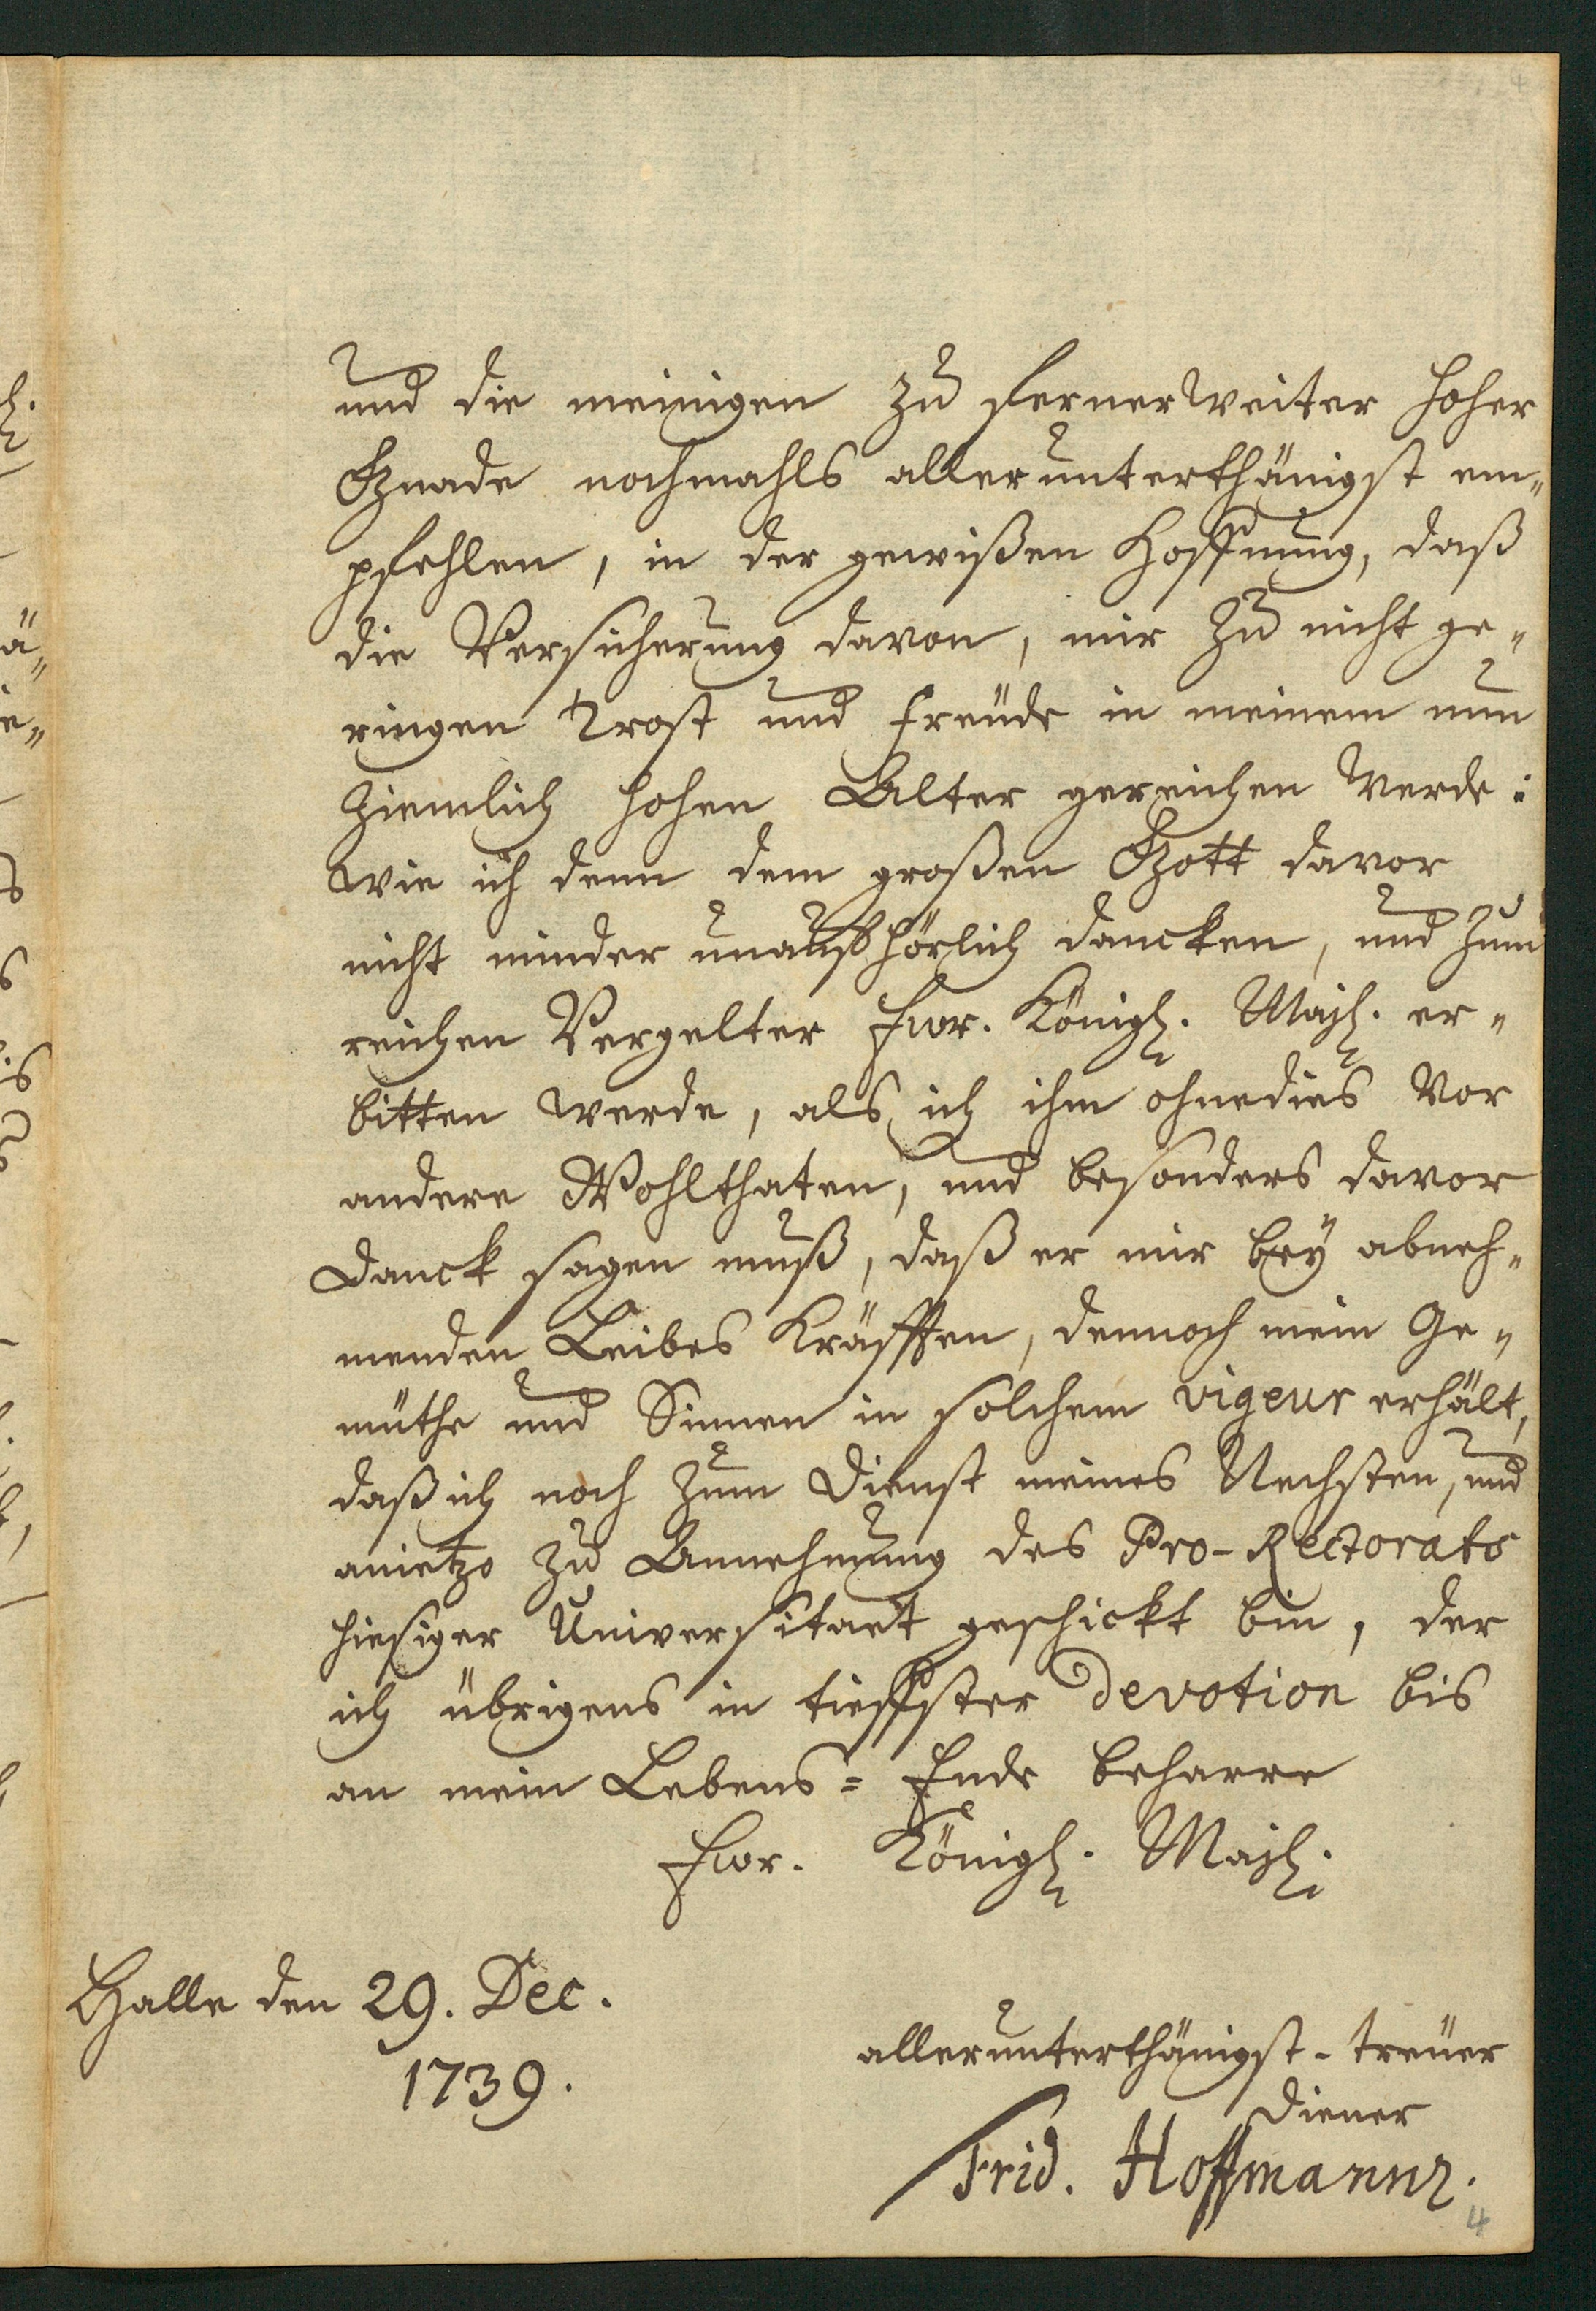 und die meinigen zu fernerweiter hoher
Gnade nochmahls allerunterthänigst em„
pfehlen, in der gewißen Hoffnung, daß
die Versicherung davon, mir zu nicht ge„
ringen Trost und Freüde in meinem nun
ziemlich hohen Alter gereichen werde:
wie ich denn dem großen Gott davor
nicht minder unaufhörlich dancken, und zum
reichen Vergelter Ewr. Königl. Majt. er„
bitten werde, als ich ihm ohnedies vor
andere Wohlthaten, und besonders davor
Danck sagen muß, daß er mir bey abneh„
menden Leibes Kräfften, dennoch mein Ge„
müthe und Sinnen in solchem vigeur erhält,
daß ich noch zum Dienst meines Nechsten, und
anietzo zu Annehmung des Pro-Rectorats
hiesiger Universitaet geschickt bin, der
ich übrigens in tieffster Devotion bis
an mein Lebens= Ende beharre
Ewr. Königl. Majt.
Halle den 29. Dec.
1739.
allerunterthänigst-treüer
Diener
Frid. Hoffmann.
4